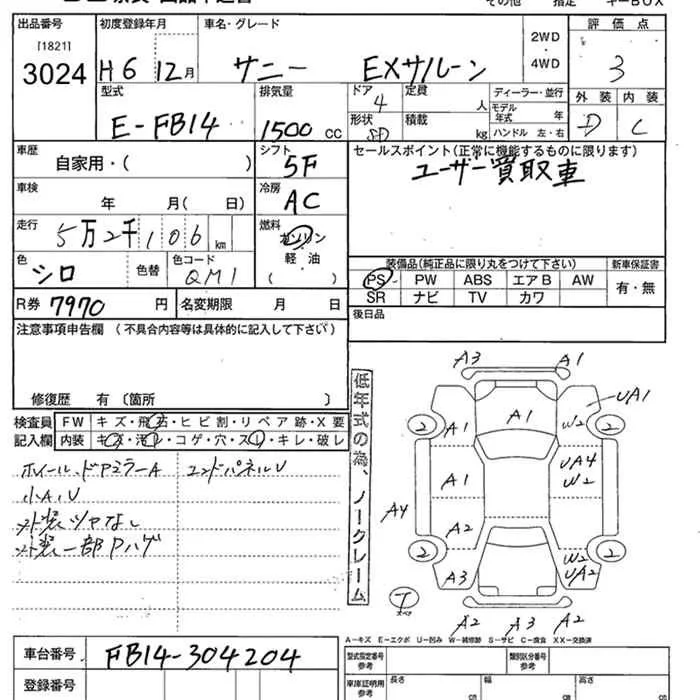 その他 指定 キーBOX
出品番号 初度登録年月 車名・グレード 2WD 評価点
[1821]
3024 H6 12月 サニー EXサルーン 4WD 3
型式 排気量 ドア 4 定員 人 ディーラー・並行 外装 内装
E-FB14 1500cc 形状 SD 積載 kg モデル年式 年 D C
ハンドル 左・右
車歴 シフト セールスポイント(正常に機能するものに限ります)
自家用・( ) 5F ユーザー買取車
車検 冷房
年 月( 日) AC
走行 燃料
5万2千106km ガソリン
色 色替 色コード 軽油 装備品(純正品に限り丸をつけて下さい) 新車保証書
シロ QM1 PS PW ABS エアB AW 有・無
R券 7970円 名変期限 月 日 SR ナビ TV カワ
後日品
注意事項申告欄 (不具合内容等は具体的に記入して下さい)
修復歴 有 〔箇所 〕
検査員 FW キズ・飛石・ヒビ割・リペア跡・X要
記入欄 内装 キズ・汚レ・コゲ・穴・スレ・キレ・破レ
ホイール、ドアミラーA エンドパネルU
小A、U
外装ツヤなし
外装一部Pハゲ
低年式の為、ノークレーム
A3 A1
UA1
A1 A1 W2
2 2
A1 UA4
W2
A4 A2
2 2
W2
A3 UA2
T
スペア
A2 A3 A2
A-キズ E-エクボ U-凹み W-補修跡 S-サビ C-腐食 XX-交換済
車台番号 FB14-304204 型式指定番号 参考 類別区分番号 参考
登録番号 車庫証明用 参考 長さ cm 幅 cm 高さ cm